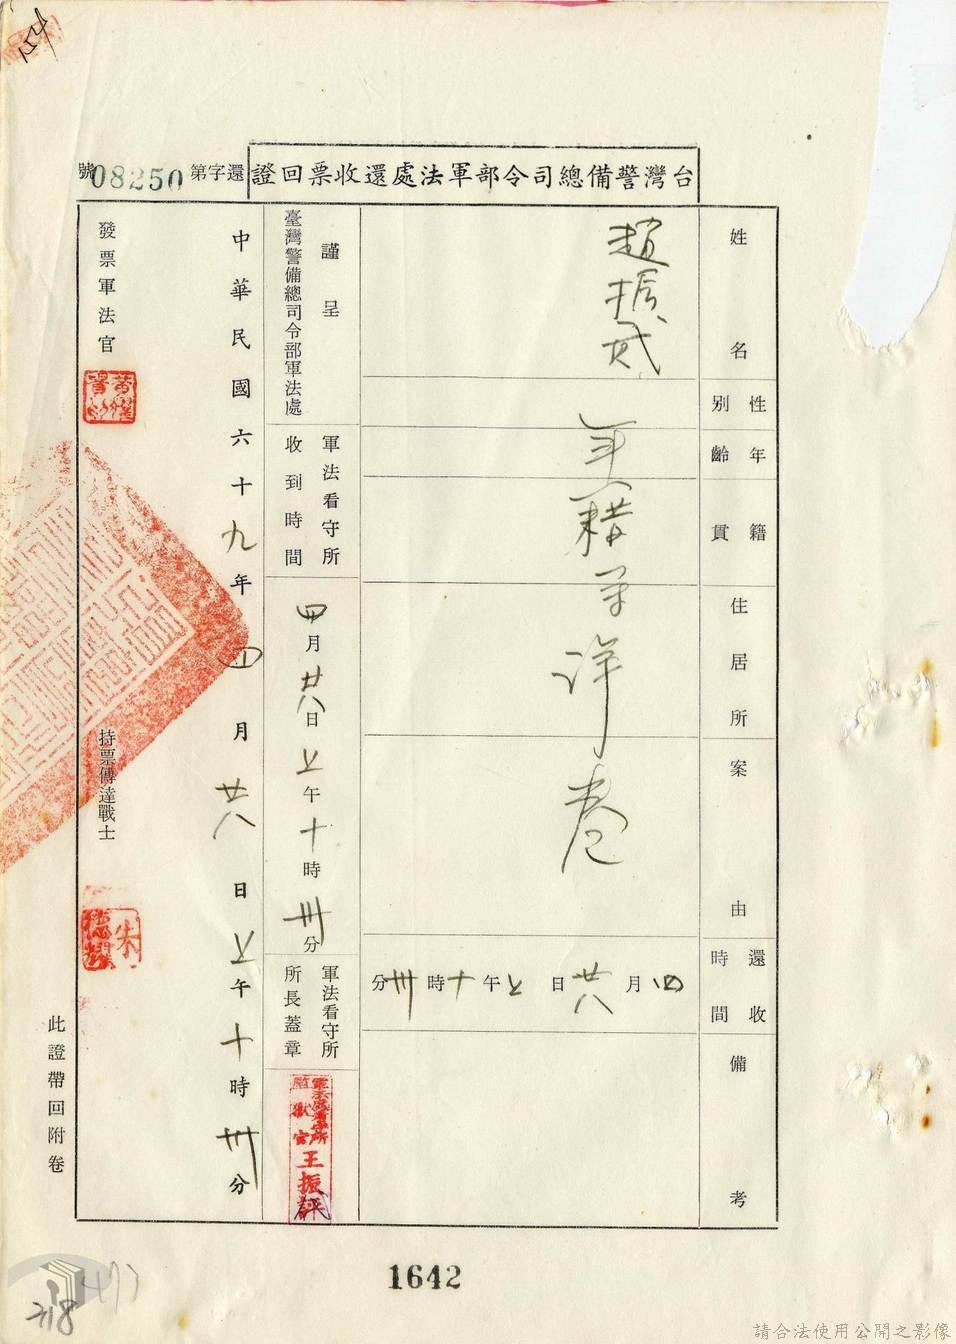 154
台灣警備總司令部軍法處還收票回證
還字第08250號
姓名
趙振貳
性別
年齡
籍貫
住居所
案由
年籍等詳卷
還收時間
四月廿八日上午十時卅分
備考
謹呈
臺灣警備總司令部軍法處
軍法看守所
收到時間
四月廿八日上午十時卅分
軍法看守所
所長蓋章
軍法處看守所
監獄官
王振評
中華民國六十九年四月廿八日上午十時卅分
發票軍法官
持票傳達戰士
朱德耀
此證帶回附卷
1642
318
請合法使用公開之影像